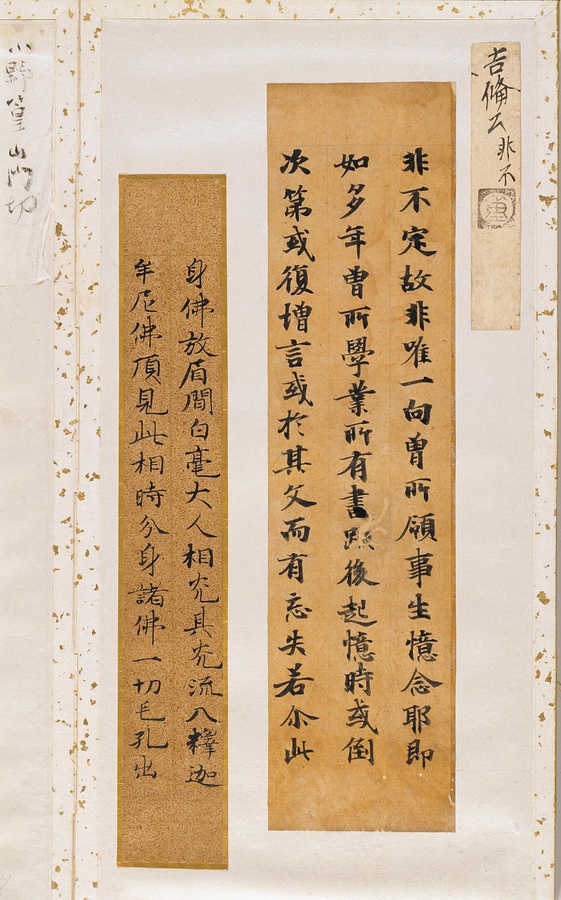 吉備公 非不
非不定故非唯一向曽所領事生憶念耶即
如多年曽所學業所有書跡後起憶時或倒
次第或復增言或於其文而有忘失若尒此
身佛放眉間白毫大人相光其光流入釋迦
牟尼佛頂見此相時分身諸佛一切毛孔出
小野篁山門切